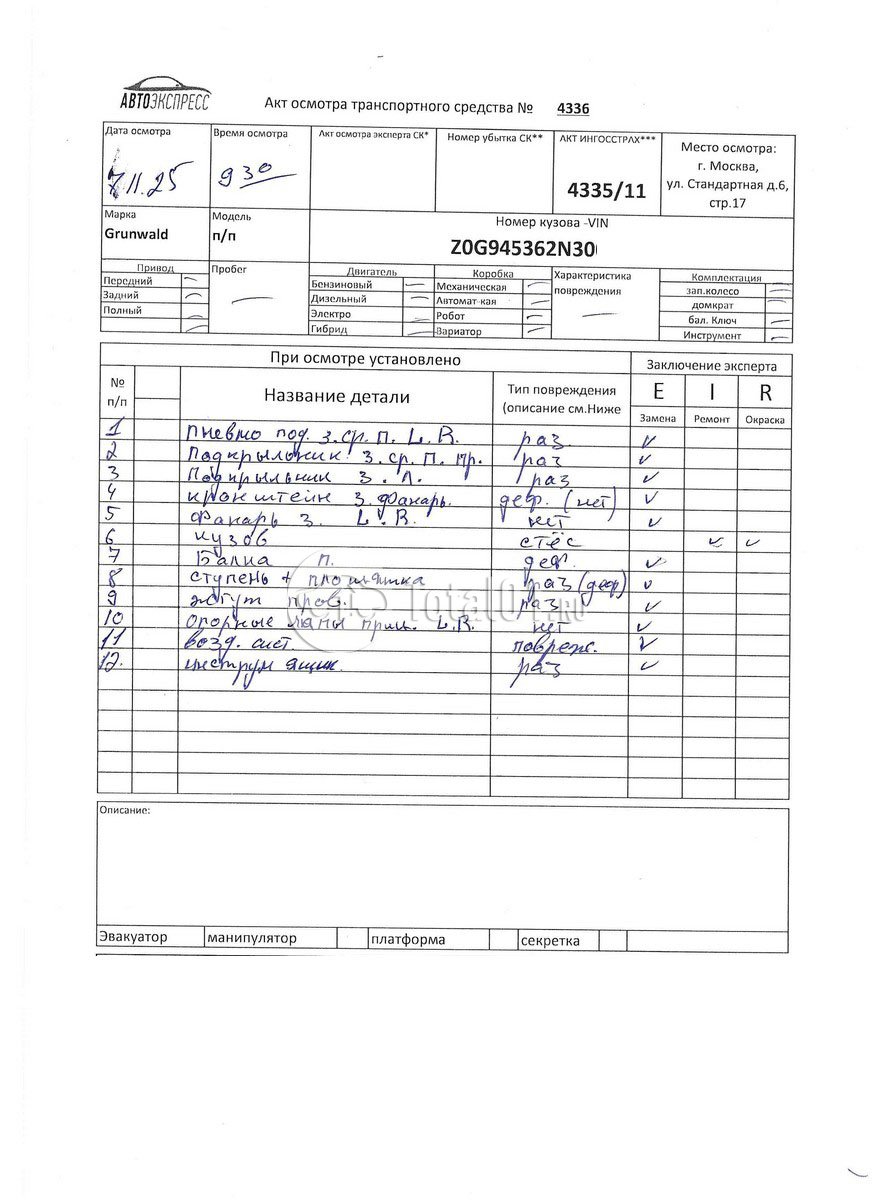 АВТОЭКСПРЕСС
Акт осмотра транспортного средства № 4336
Дата осмотра
7.11.25
Время осмотра
9 30
Акт осмотра эксперта СК*
Номер убытка СК**
АКТ ИНГОССТРАХ***
4335/11
Место осмотра:
г. Москва,
ул. Стандартная д.6,
стр.17
Марка
Grunwald
Модель
п/п
Номер кузова -VIN
Z0G945362N30
Привод
Передний
Задний
Полный
Пробег
Двигатель
Бензиновый
Дизельный
Электро
Гибрид
Коробка
Механическая
Автомат-кая
Робот
Вариатор
Характеристика
повреждения
Комплектация
зап.колесо
домкрат
бал. Ключ
Инструмент
При осмотре установлено
Заключение эксперта
№
п/п
Название детали
Тип повреждения
(описание см.Ниже
E I R
Замена Ремонт Окраска
1 Пневмо под. з. ср. п. L. R. раз ✓
2 Подкрыльник з. ср. п. пр. раз ✓
3 Подкрыльник з. л. раз ✓
4 кронштейн з. фонарь. деф. (нет) ✓
5 Фонарь з. L. R. нет ✓
6 кузов стёс ✓ ✓
7 Балка п. деф. ✓
8 ступень + площадка раз (деф) ✓
9 жгут пров. раз ✓
10 опорные лапы приц. L. R. нет ✓
11 возд. сист. повреж. ✓
12. инструм ящик. раз ✓
TotalOt.RU
Описание:
Эвакуатор манипулятор платформа секретка